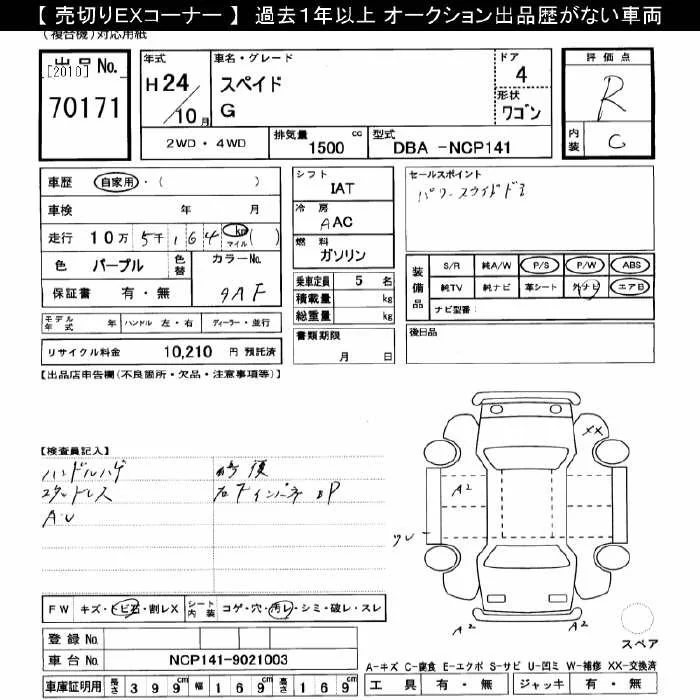 【 売切りEXコーナー 】 過去1年以上 オークション出品歴がない車両
(複合機)対応用紙
出品 No.
[2010]
70171
年式
H 24
10 月
車名・グレード
スペイド
G
ドア
4
形状
ワゴン
評価点
R
内装
C
2WD・4WD
排気量 cc
1500
型式
DBA -NCP141
車歴 自家用・( )
車検 年 月
走行 10万 5千 164 km マイル ( )
色 パープル 色替
カラーNo.
9AF
保証書 有・無
シフト
IAT
冷房
AAC
燃料
ガソリン
乗車定員 5 名
積載量 kg
総重量 kg
セールスポイント
パワースライドドア
装備品
S/R 純A/W P/S P/W ABS
純TV 純ナビ 革シート 外ナビ エアB
ナビ型番:
モデル年式 年 ハンドル 左・右 ディーラー・並行
リサイクル料金 10,210 円 預託済
書類期限
月 日
後日品
【出品店申告欄(不良箇所・欠品・注意事項等)】
【検査員記入】
ハンドルハゲ
スタッドレス
AU
修復
右Fインパネ
XX
A2
ワレ
A2
A2
FW キズ・トビ石・割レX
シート内装 コゲ・穴・汚レ・シミ・破レ・スレ
スペア
登録 No.
車台 No. NCP141-9021003
A-キズ C-腐食 E-エクボ S-サビ U-凹ミ W-補修 XX-交換済
車庫証明用 長さ 399cm 幅 169cm 高さ 169cm
工具 有・無 ジャッキ 有・無